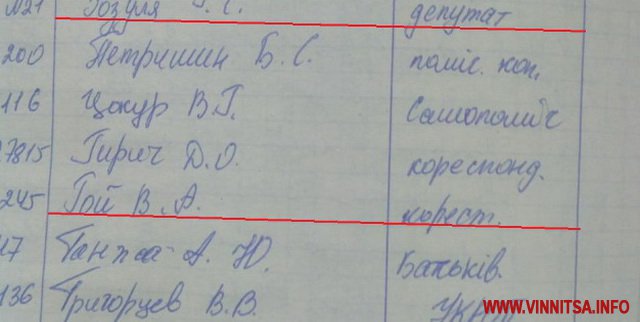 №21 Гозуля Г. С. депутат
200 Петришин Б. С. поміс. коп.
116 Цокур В.Г. Самопоміч
7815 Гирич Д.О. кореспонд.
245 Гой В.А. корест.
17 Ганжа А. Ю. Батьків.
136 Григорцев В.В. УКРОП
WWW.VINNITSA.INFO